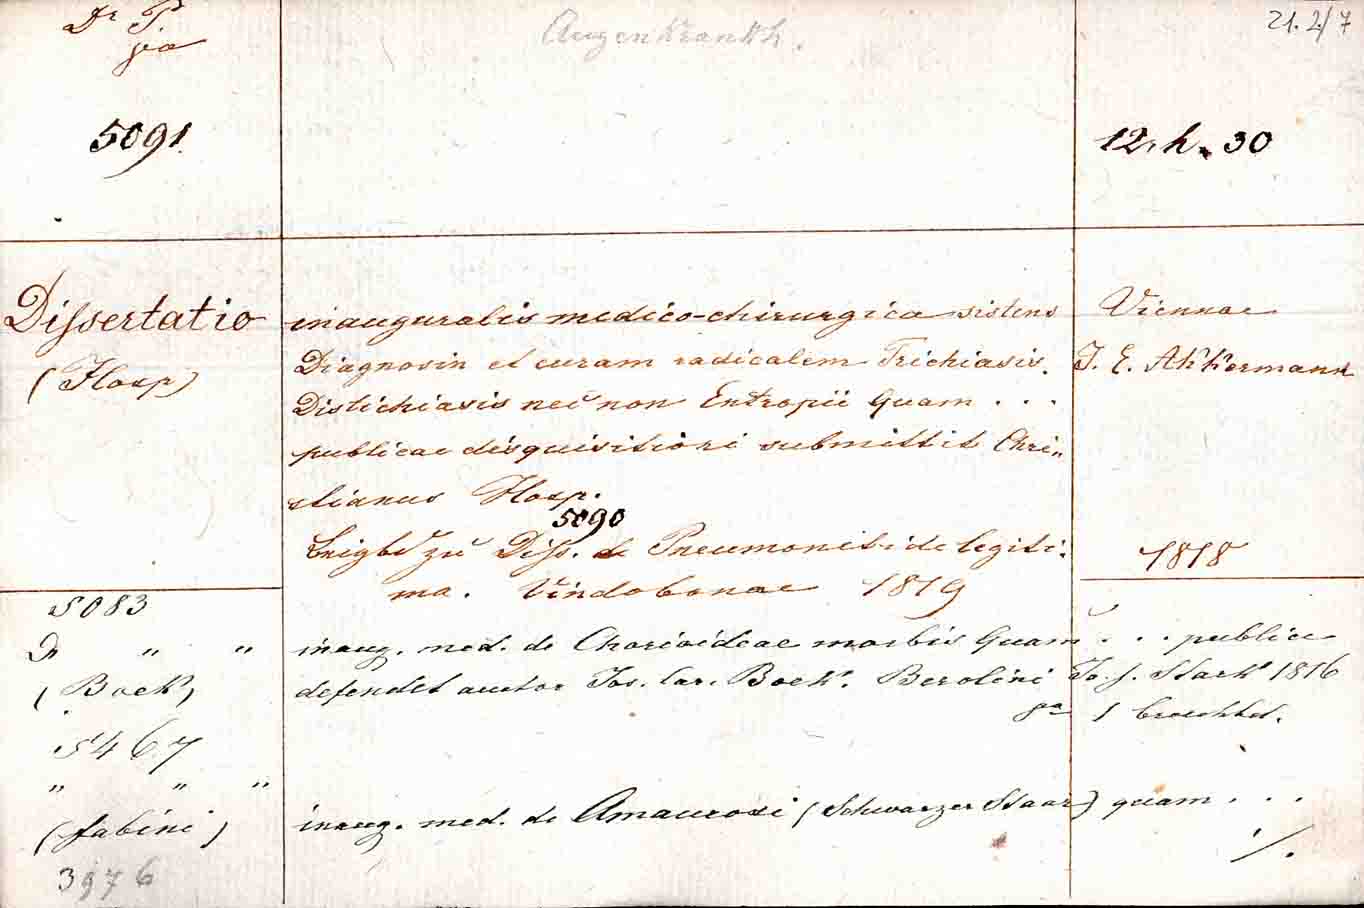 Dr P.
Augenkrankh.
21.2/7
5091
12. h. 30
Dissertatio inauguralis medico-chirurgica sistens Viennae
(Hosp) Diagnosin et curam radicalem Trichiasis, J. E. Akkermann
Distichiasis nec non Entropii Quam . . .
publicae disquisitioni submittit Chri-
stianus Hosp.
5090
beigb. zu Diss. de Pneumonitide legiti- 1818
ma. Vindobonae 1819
5083
D " " inaug. med. de Chorioideae morbis Quam . . . publice
(Boek) defendet auctor Jos. Car. Boek. Berolini Jo. f. Stark 1816
1 broschbd.
5467
" " "
(fabini) inaug. med. de Amaurosi (Schwarzer Staar) quam . . .
·/.
3976